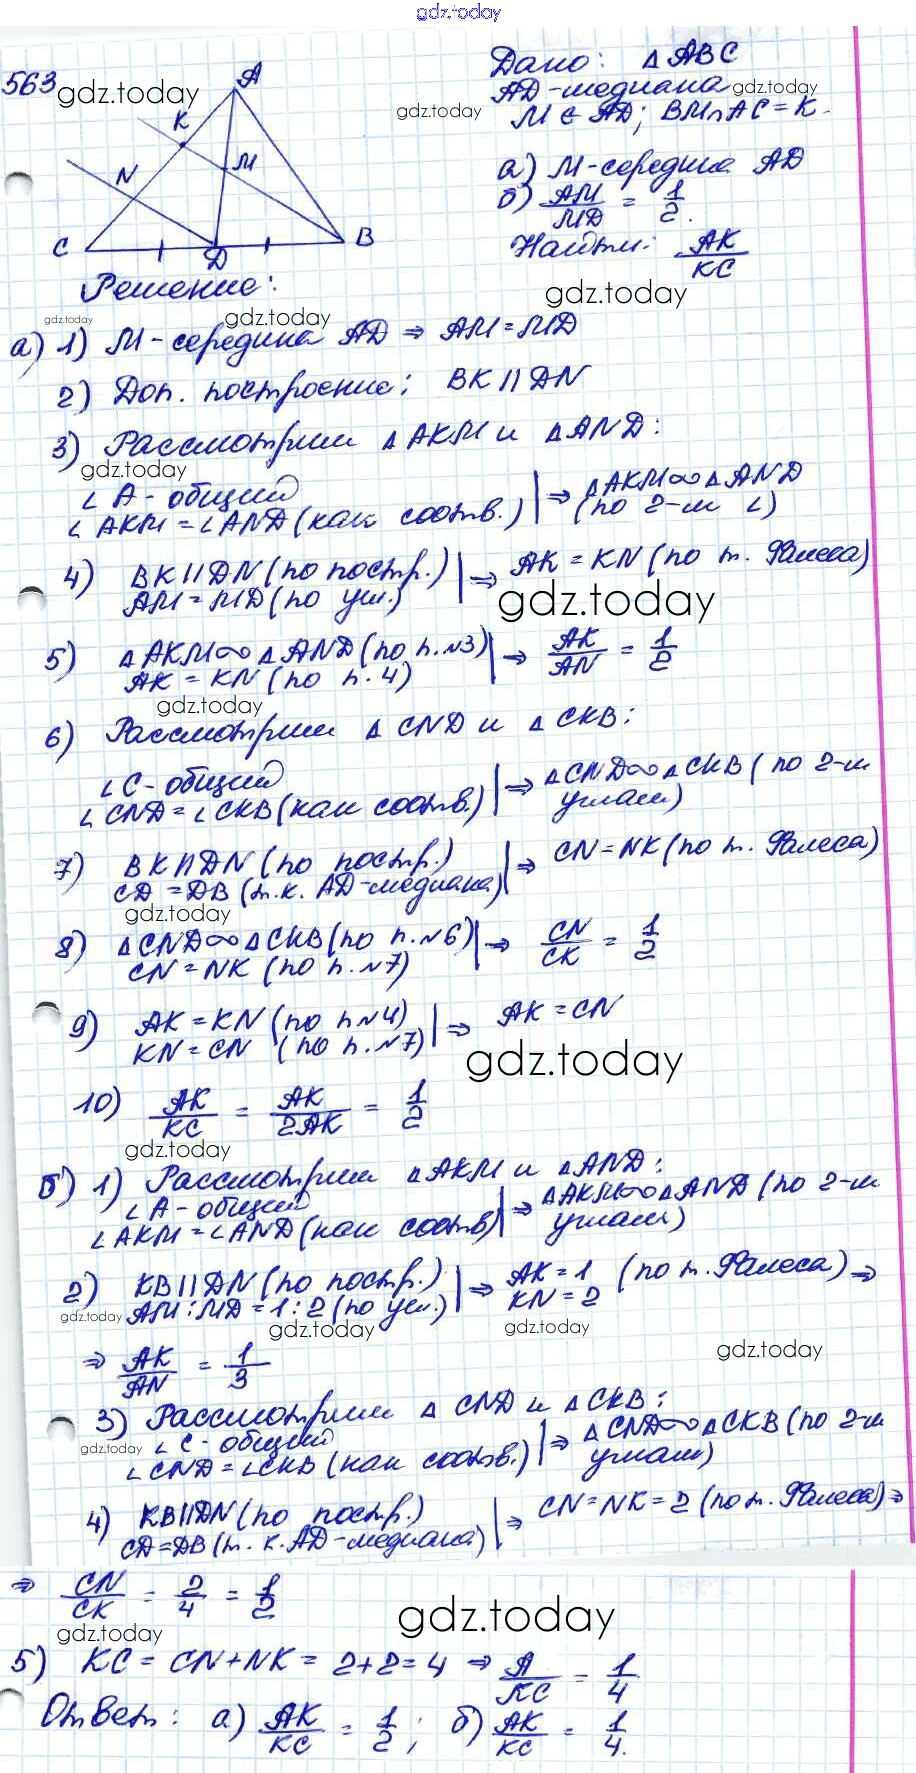 gdz.today
563
gdz.today
A
K
M
N
C
D
B
Дано: △ABC
AD-медиана
gdz.today
gdz.today
M ∈ AD; BM∩AC=K.
а) M-середина AD
б) AM/MD = 1/2.
Найти: AK/KC
gdz.today
Решение:
gdz.today
gdz.today
а) 1) M-середина AD ⇒ AM=MD
2) Доп. построение; BK∥DN
3) Рассмотрим △AKM и △AND:
gdz.today
∠A-общий
∠AKM=∠AND(как соотв.) | ⇒ △AKM∾△AND (по 2-м ∠)
4) BK∥DN(по постр.)
AM=MD(по усл.) | ⇒ AK=KN(по т. Фалеса)
gdz.today
5) △AKM∾△AND(по п.№3)
AK=KN(по п.4) | ⇒ AK/AN = 1/2
gdz.today
6) Рассмотрим △CND и △CKB:
∠C-общий
∠CND=∠CKB(как соотв.) | ⇒ △CND∾△CKB(по 2-м углам)
7) BK∥DN(по постр.)
CD=DB(т.к. AD-медиана) | ⇒ CN=NK(по т. Фалеса)
gdz.today
8) △CND∾△CKB(по п.№6)
CN=NK(по п.№7) | ⇒ CN/CK = 1/2
9) AK=KN(по п№4)
KN=CN (по п.№7) | ⇒ AK=CN
gdz.today
10) AK/KC = AK/2AK = 1/2
gdz.today
б) 1) Рассмотрим △AKM и △AND:
∠A-общий
∠AKM=∠AND(как соотв) | ⇒ △AKM∾△AND(по 2-м углам)
2) KB∥DN(по постр.)
AM:MD=1:2(по усл.) | ⇒ AK=1 KN=2 (по т.Фалеса) ⇒
gdz.today
gdz.today
gdz.today
⇒ AK/AN = 1/3
gdz.today
3) Рассмотрим △CND и △CKB:
gdz.today
∠C-общий
∠CND=∠CKB(как соотв.) | ⇒ △CND∾△CKB(по 2-м углам)
4) KB∥DN(по постр.)
CD=DB(т.к.AD-медиана) | ⇒ CN=NK=2(по т.Фалеса)⇒
⇒ CN/CK = 2/4 = 1/2
gdz.today
gdz.today
5) KC=CN+NK=2+2=4 ⇒ A/KC = 1/4
Ответ: а) AK/KC = 1/2; б) AK/KC = 1/4.